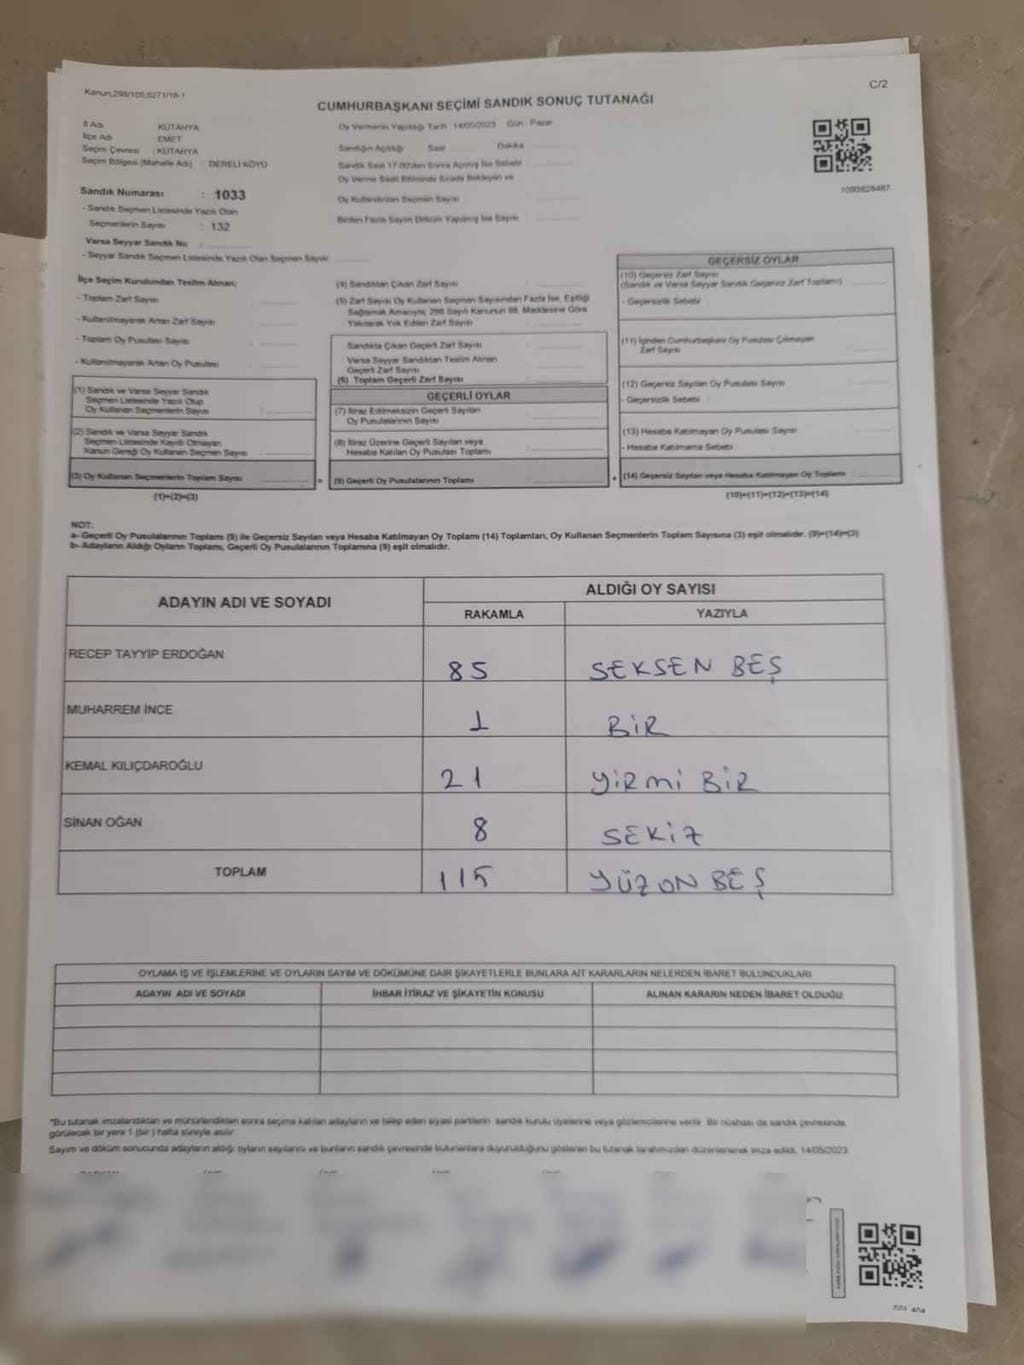 Kanun;298/105,6271/18-1
C/2
CUMHURBAŞKANI SEÇİMİ SANDIK SONUÇ TUTANAĞI
İl Adı : KÜTAHYA
İlçe Adı : EMET
Seçim Çevresi : KÜTAHYA
Seçim Bölgesi (Mahalle Adı) : DERELİ KÖYÜ
Oy Vermenin Yapıldığı Tarih :14/05/2023 Gün : Pazar
Sandığın Açıldığı Saat Dakika
Sandık Saat 17:00'den Sonra Açılmış İse Sebebi
Oy Verme Saati Bitiminde Sırada Bekleyen ve
Oy Kullandırılan Seçmen Sayısı
Birden Fazla Sayım Döküm Yapılmış İse Sayısı
Sandık Numarası : 1033
- Sandık Seçmen Listesinde Yazılı Olan
Seçmenlerin Sayısı : 132
Varsa Seyyar Sandık No :
- Seyyar Sandık Seçmen Listesinde Yazılı Olan Seçmen Sayısı
İlçe Seçim Kurulundan Teslim Alınan;
- Toplam Zarf Sayısı
- Kullanılmayarak Artan Zarf Sayısı
- Toplam Oy Pusulası Sayısı
- Kullanılmayarak Artan Oy Pusulası
(1) Sandık ve Varsa Seyyar Sandık
Seçmen Listesinde Yazılı Olup
Oy Kullanan Seçmenlerin Sayısı
(2) Sandık ve Varsa Seyyar Sandık
Seçmen Listesinde Kayıtlı Olmayan
Kanun Gereği Oy Kullanan Seçmen Sayısı
(3) Oy Kullanan Seçmenlerin Toplam Sayısı
(1)+(2)=(3)
(4) Sandıktan Çıkan Zarf Sayısı
(5) Zarf Sayısı Oy Kullanan Seçmen Sayısından Fazla İse, Eşitliği
Sağlamak Amacıyla; 298 Sayılı Kanunun 98. Maddesine Göre
Yakılarak Yok Edilen Zarf Sayısı
Sandıkta Çıkan Geçerli Zarf Sayısı
Varsa Seyyar Sandıktan Teslim Alınan
Geçerli Zarf Sayısı
(6) Toplam Geçerli Zarf Sayısı
GEÇERLİ OYLAR
(7) İtiraz Edilmeksizin Geçerli Sayılan
Oy Pusulalarının Sayısı
(8) İtiraz Üzerine Geçerli Sayılan veya
Hesaba Katılan Oy Pusulası Toplamı
= (9) Geçerli Oy Pusulalarının Toplamı
GEÇERSİZ OYLAR
(10) Geçersiz Zarf Sayısı
(Sandık ve Varsa Seyyar Sandık Geçersiz Zarf Toplamı)
- Geçersizlik Sebebi
(11) İçinden Cumhurbaşkanı Oy Pusulası Çıkmayan
Zarf Sayısı
(12) Geçersiz Sayılan Oy Pusulası Sayısı
- Geçersizlik Sebebi
(13) Hesaba Katılmayan Oy Pusulası Sayısı
- Hesaba Katılmama Sebebi
+ (14) Geçersiz Sayılan veya Hesaba Katılmayan Oy Toplamı
(10)+(11)+(12)+(13)=(14)
NOT:
a- Geçerli Oy Pusulalarının Toplamı (9) ile Geçersiz Sayılan veya Hesaba Katılmayan Oy Toplamı (14) Toplamları, Oy Kullanan Seçmenlerin Toplam Sayısına (3) eşit olmalıdır. (9)+(14)=(3)
b- Adayların Aldığı Oyların Toplamı, Geçerli Oy Pusulalarının Toplamına (9) eşit olmalıdır.
ADAYIN ADI VE SOYADI
ALDIĞI OY SAYISI
RAKAMLA YAZIYLA
RECEP TAYYİP ERDOĞAN 85 SEKSEN BEŞ
MUHARREM İNCE 1 BİR
KEMAL KILIÇDAROĞLU 21 YİRMİ BİR
SİNAN OĞAN 8 SEKİZ
TOPLAM 115 YÜZ ON BEŞ
OYLAMA İŞ VE İŞLEMLERİNE VE OYLARIN SAYIM VE DÖKÜMÜNE DAİR ŞİKAYETLERLE BUNLARA AİT KARARLARIN NELERDEN İBARET BULUNDUKLARI
ADAYIN ADI VE SOYADI İHBAR İTİRAZ VE ŞİKAYETİN KONUSU ALINAN KARARIN NEDEN İBARET OLDUĞU
"Bu tutanak imzalandıktan ve mühürlendikten sonra seçime katılan adayların ve talep eden siyasi partilerin sandık kurulu üyelerine veya gözlemcilerine verilir. Bir nüshası da sandık çevresinde
görülecek bir yere 1 (bir) hafta süreyle asılır.
Sayım ve döküm sonucunda adayların aldığı oyların sayılarını ve bunların sandık çevresinde bulunanlara duyurulduğunu gösteren bu tutanak tarafımızdan düzenlenerek imza edildi. 14/05/2023